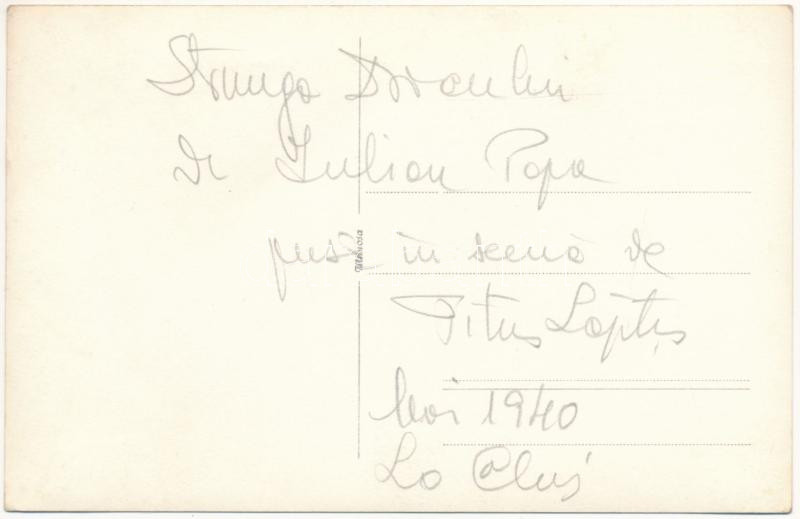 Strunga Dracului
de Iulian Popa
pusă în scenă de
Titus Lapteș
Mai 1940
La Cluj
Mimosa